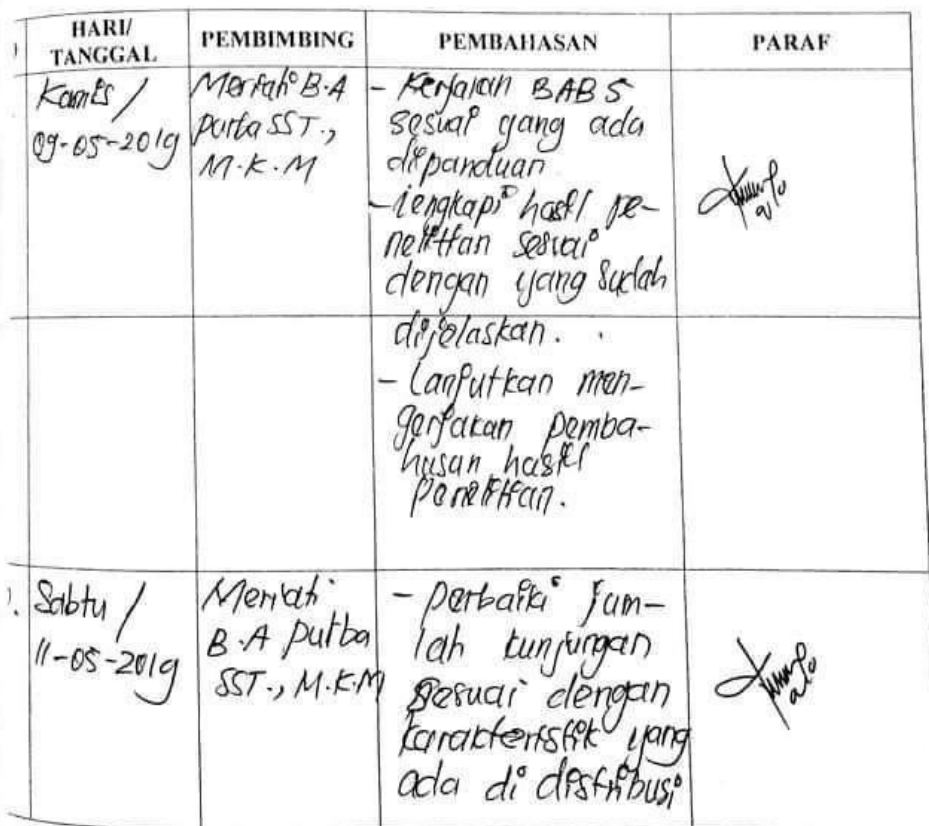 HARI/
TANGGAL
PEMBIMBING
PEMBAHASAN
PARAF
Kamis /
09-05-2019
B.A
SST.,
M.K.M
- Kerjakan BAB 5
sesuai yang ada
dipanduan
- lengkapi hasil pe-
nelitian sesuai
dengan yang sudah
dijelaskan.
- Lanjutkan men-
gerjakan pemba-
hasan hasil
Penelitian.
Sabtu /
11-05-2019
B.A purba
SST., M.K.M
- perbaiki jum-
lah kunjungan
sesuai dengan
karakteristik yang
ada di distribusi